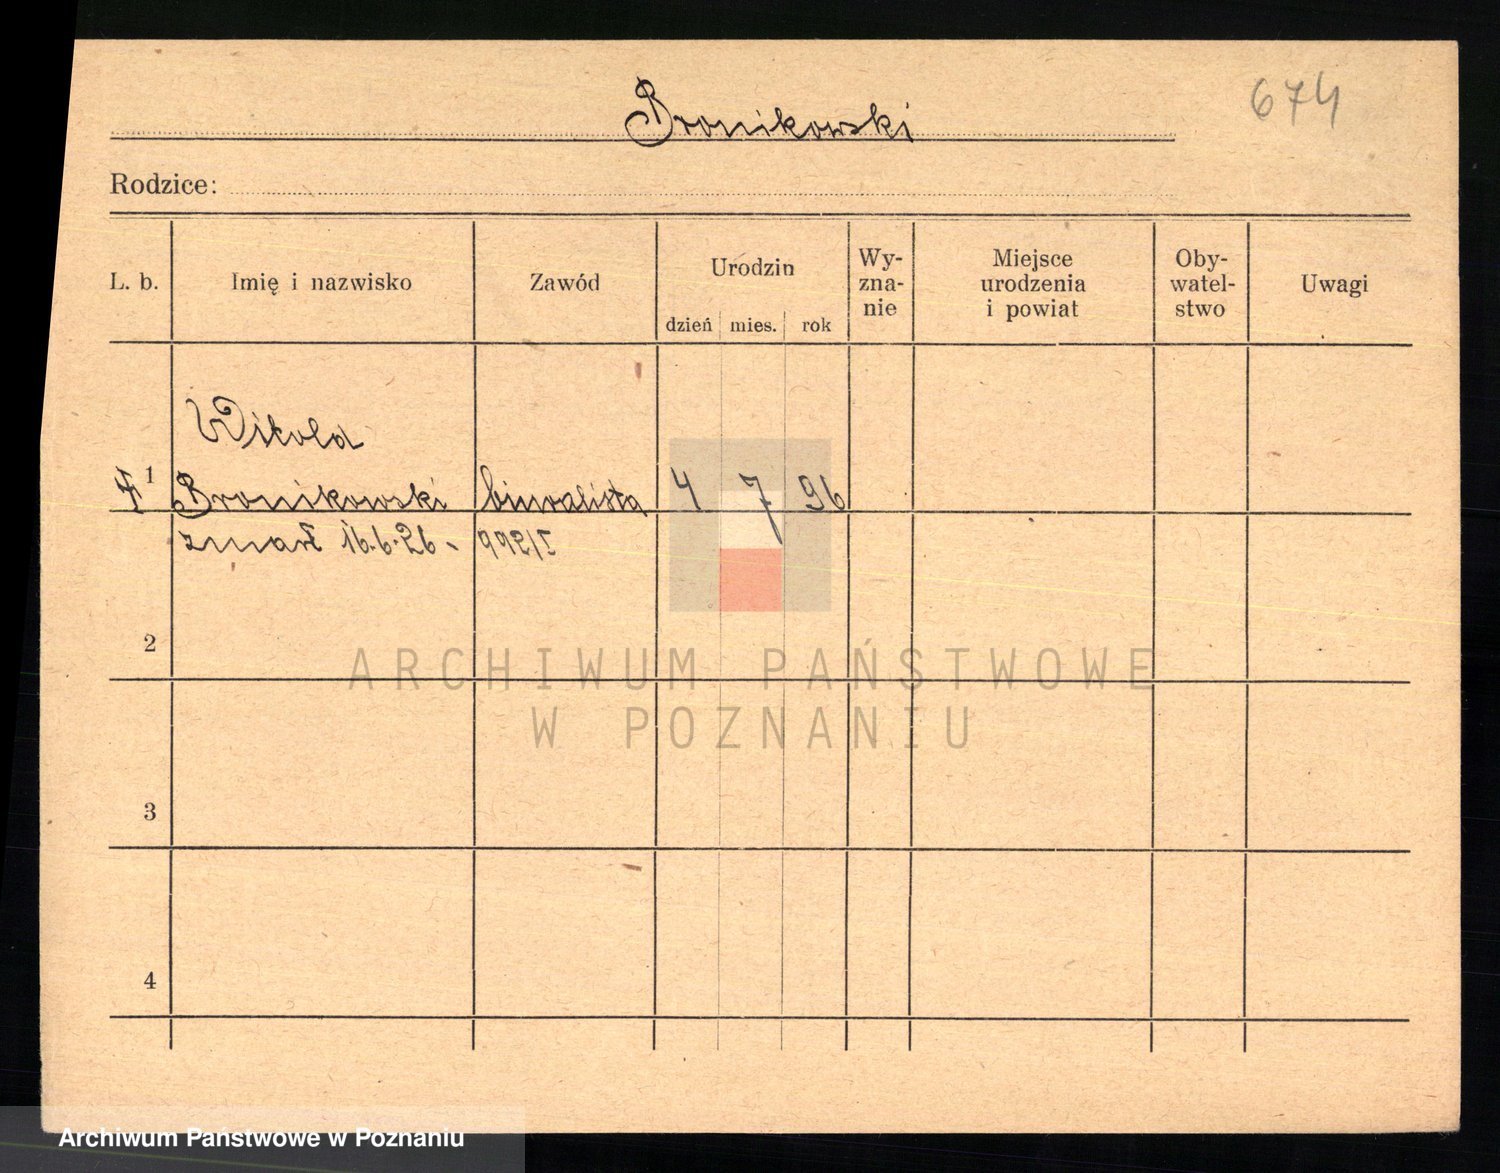 Bronikowski
674
Rodzice:
L. b. Imię i nazwisko Zawód Urodzin Wy-zna-nie Miejsce urodzenia i powiat Oby-watel-stwo Uwagi
dzień mies. rok
Witold
1 Bronikowski biuralista 4 7 96
zmarł 16.6.26 - 992/I
2
3
4
ARCHIWUM PAŃSTWOWE
W POZNANIU
Archiwum Państwowe w Poznaniu